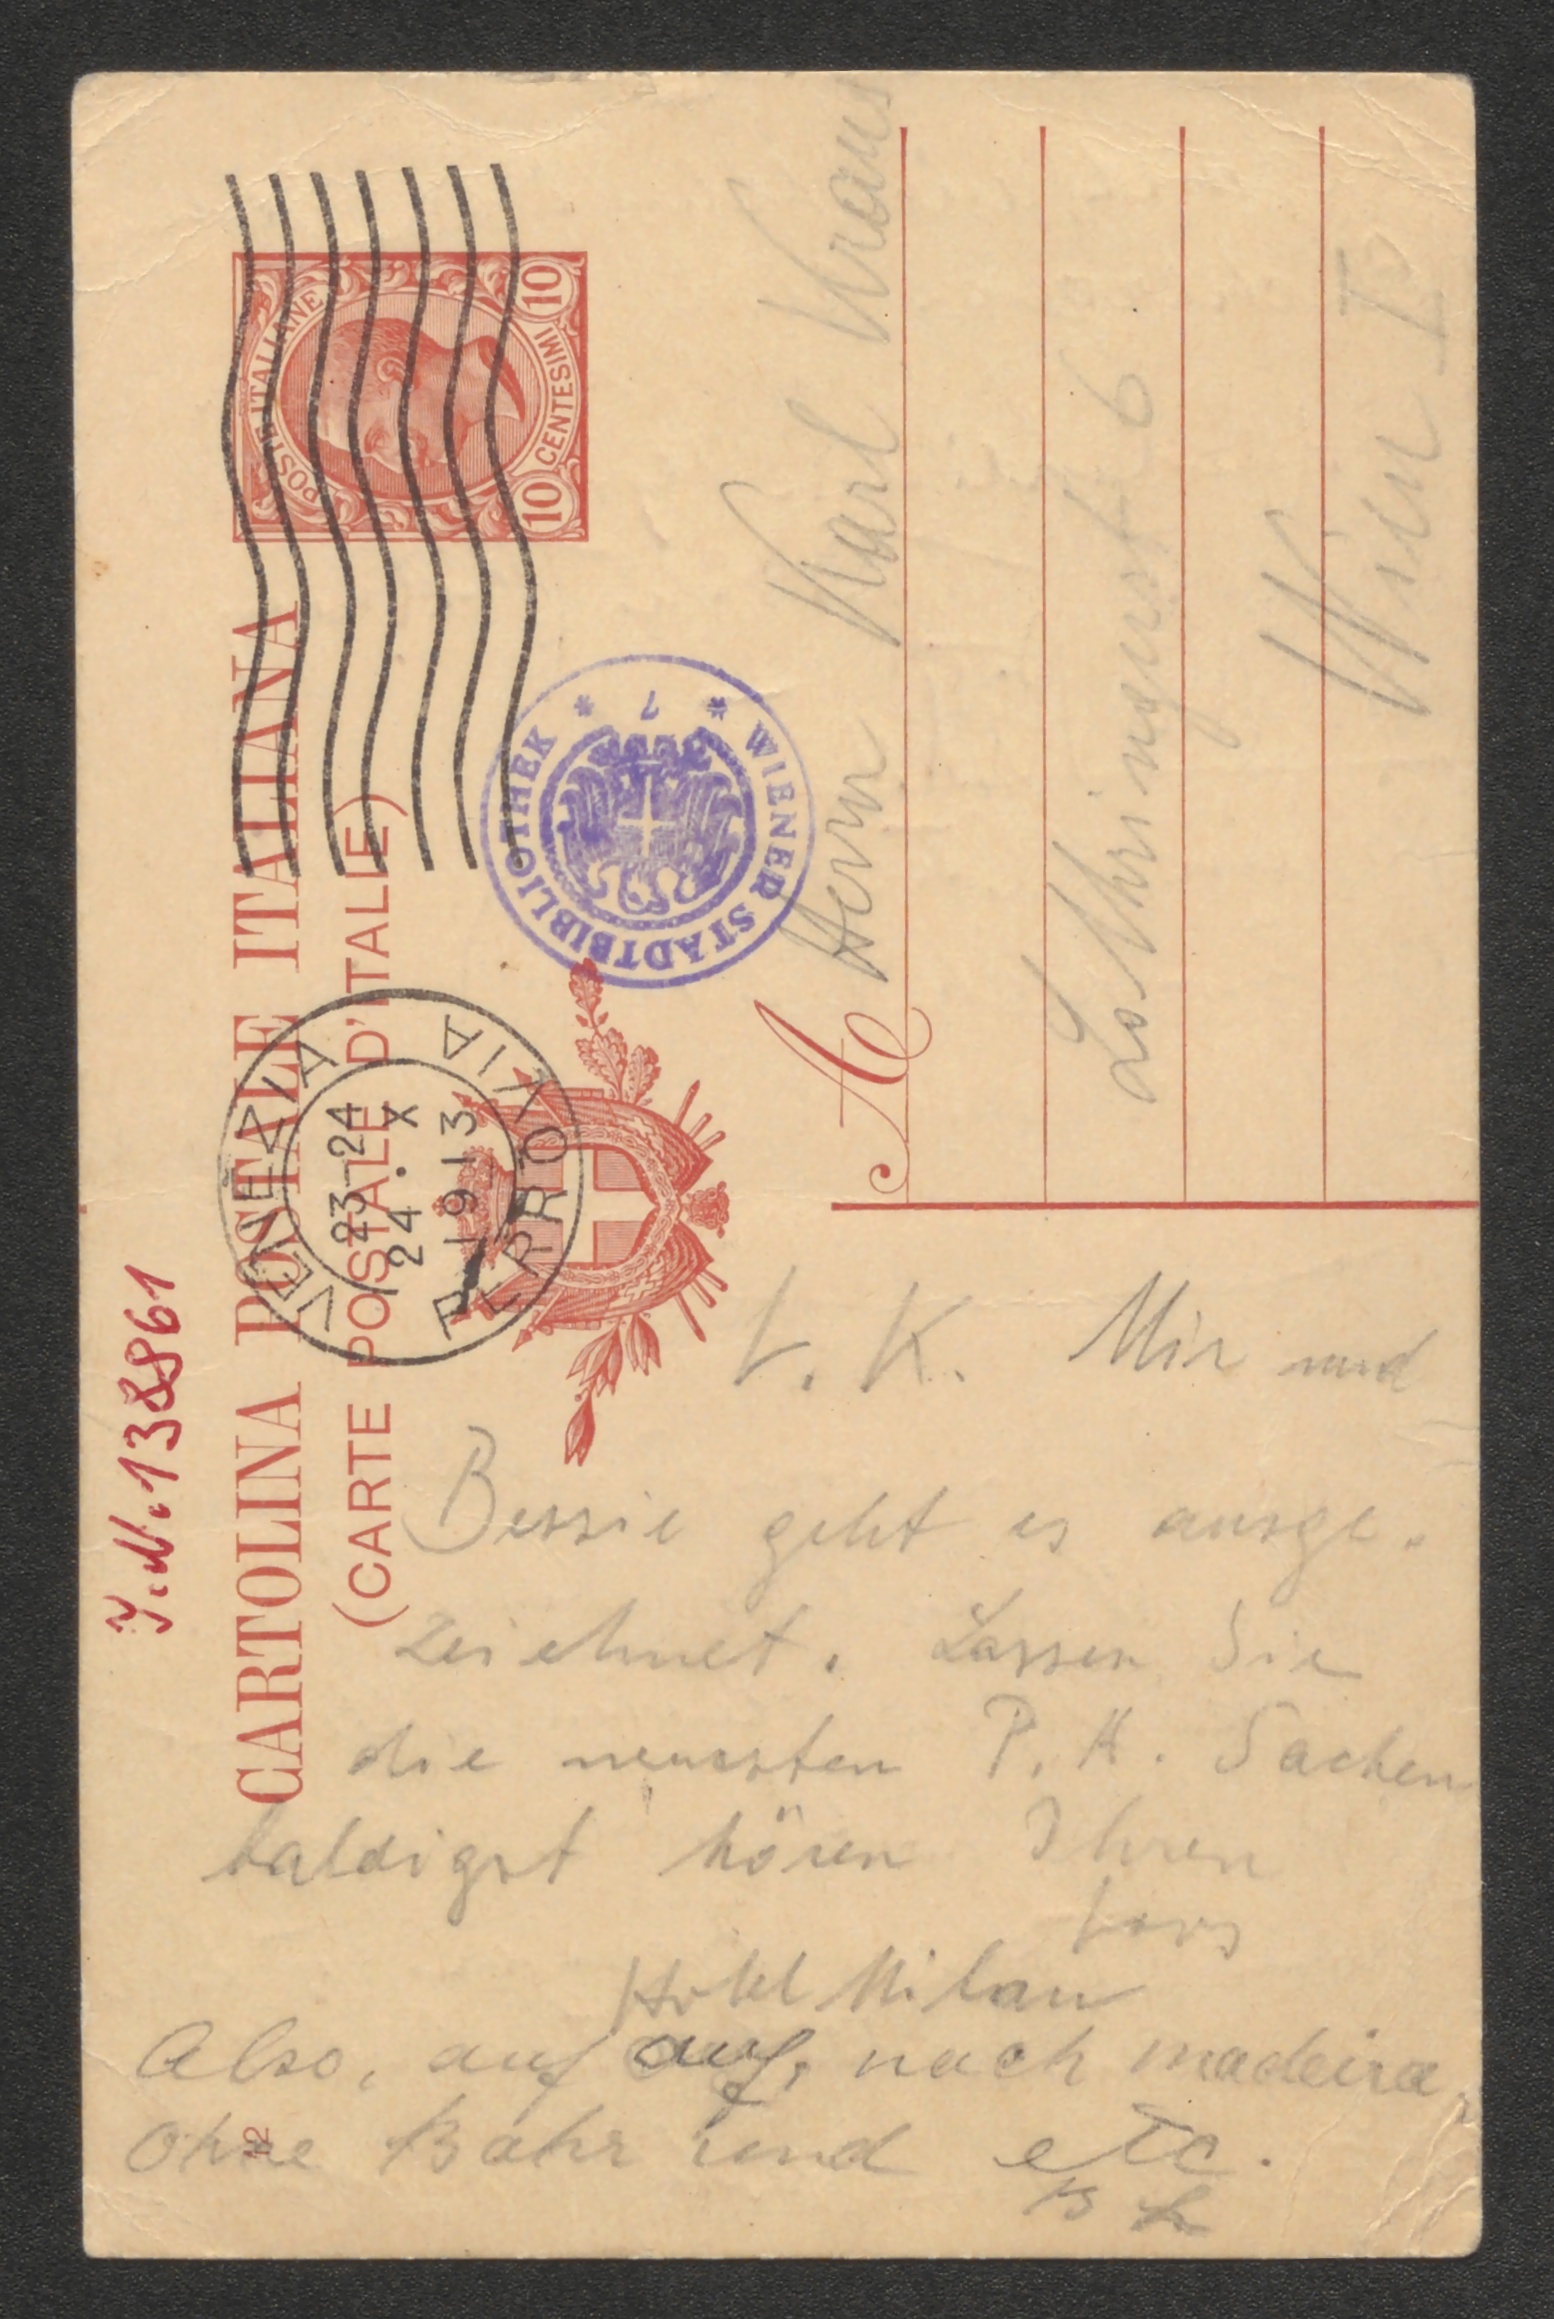 CARTOLINA POSTALE ITALIANA
(CARTE POSTALE D'ITALIE)
POSTE ITALIANE
10 CENTESIMI 10
VENEZIA
23-24
24. X
1913
FERROVIA
WIENER STADTBIBLIOTHEK
* 7 *
J.N. 138861
A
Herrn Karl Kraus
Lothringerst 6
Wien IV
L. K. Mir und
Bessie geht es ausge-
zeichnet. Lassen Sie
die neuesten P. A. Sachen
baldigst hören Ihren
Loos
Hotel Milan
Also, auf auf, nach madeira,
Ohne Bahr und etc.
B L
12